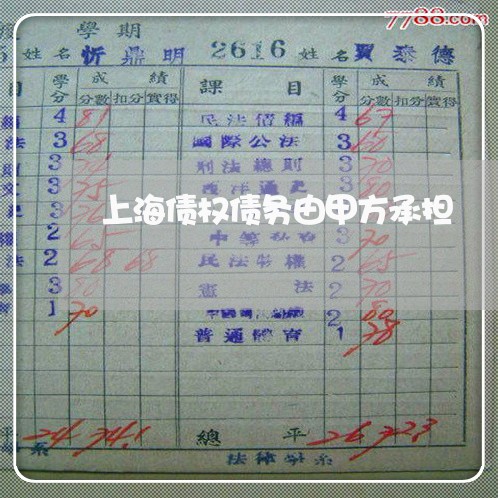 7788.com
學期
姓名 忻鼎明 2616 姓名 賈泰德
目 學分 成績 課目 學分 成績
分數 扣分 實得 分數 扣分 實得
4 81 民法債編 4 67
法 3 68 國際公法 3 60
3 刑法總則 3 70
3 75 西洋通史 3 80
上海债权债务由甲方承担
2 65 3 70
法 2 68 68 民法物權 2 65
3 80 憲法 2 70
1 70 2 80
普通體育 1 78
平 24 74.1 總平 26 72.3
系 法律學系